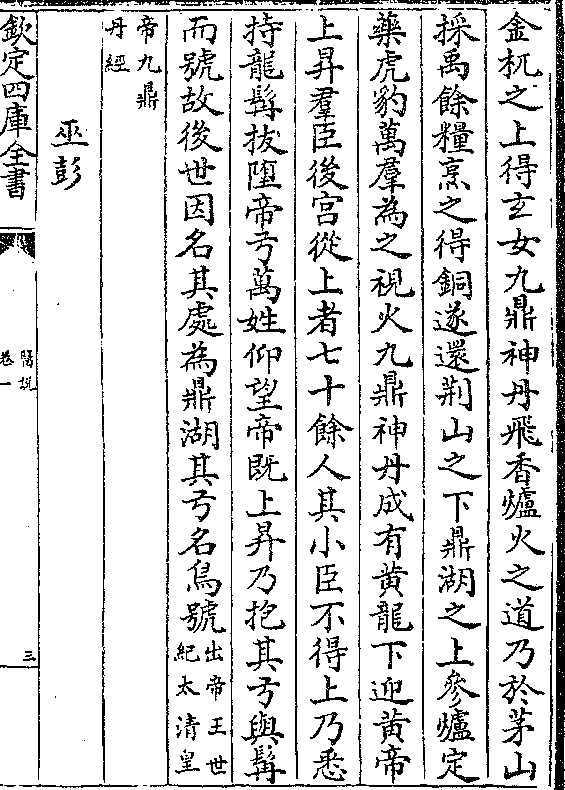 金杌之上得玄女九鼎神丹飛香爐火之道乃於茅山
採禹餘糧烹之得銅遂還荆山之下鼎湖之上參爐定
藥虎豹萬羣為之視火九鼎神丹成有黄龍下迎黄帝
上昇羣臣後宮從上者七十餘人其小臣不得上乃悉
持龍髯拔墮帝弓萬姓仰望帝既上昇乃抱其弓與髯
而號故後世因名其處為鼎湖其弓名烏號出帝王世
紀太清皇
帝九鼎
丹經
巫彭
欽定四庫全書
醫説
卷一
三